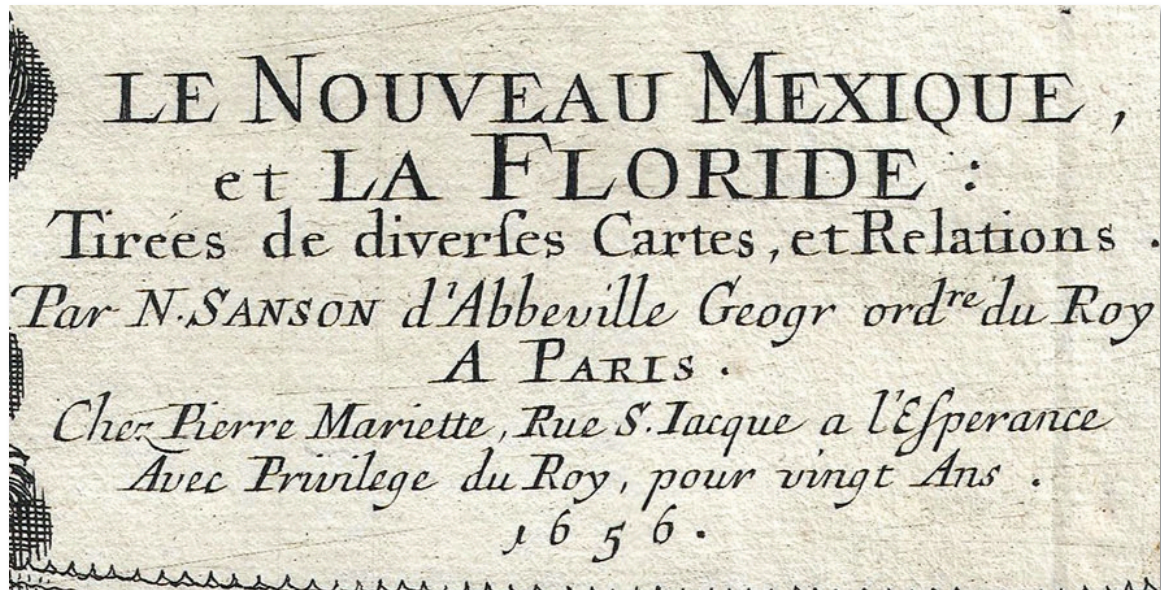 LE NOUVEAU MEXIQUE,
et LA FLORIDE :
Tirées de diverſes Cartes, et Relations.
Par N. SANSON d'Abbeville Geogr ordre du Roy
A PARIS.
Chez Pierre Mariette, Rue S. Iacque a l'Eſperance
Avec Privilege du Roy, pour vingt Ans.
1656.